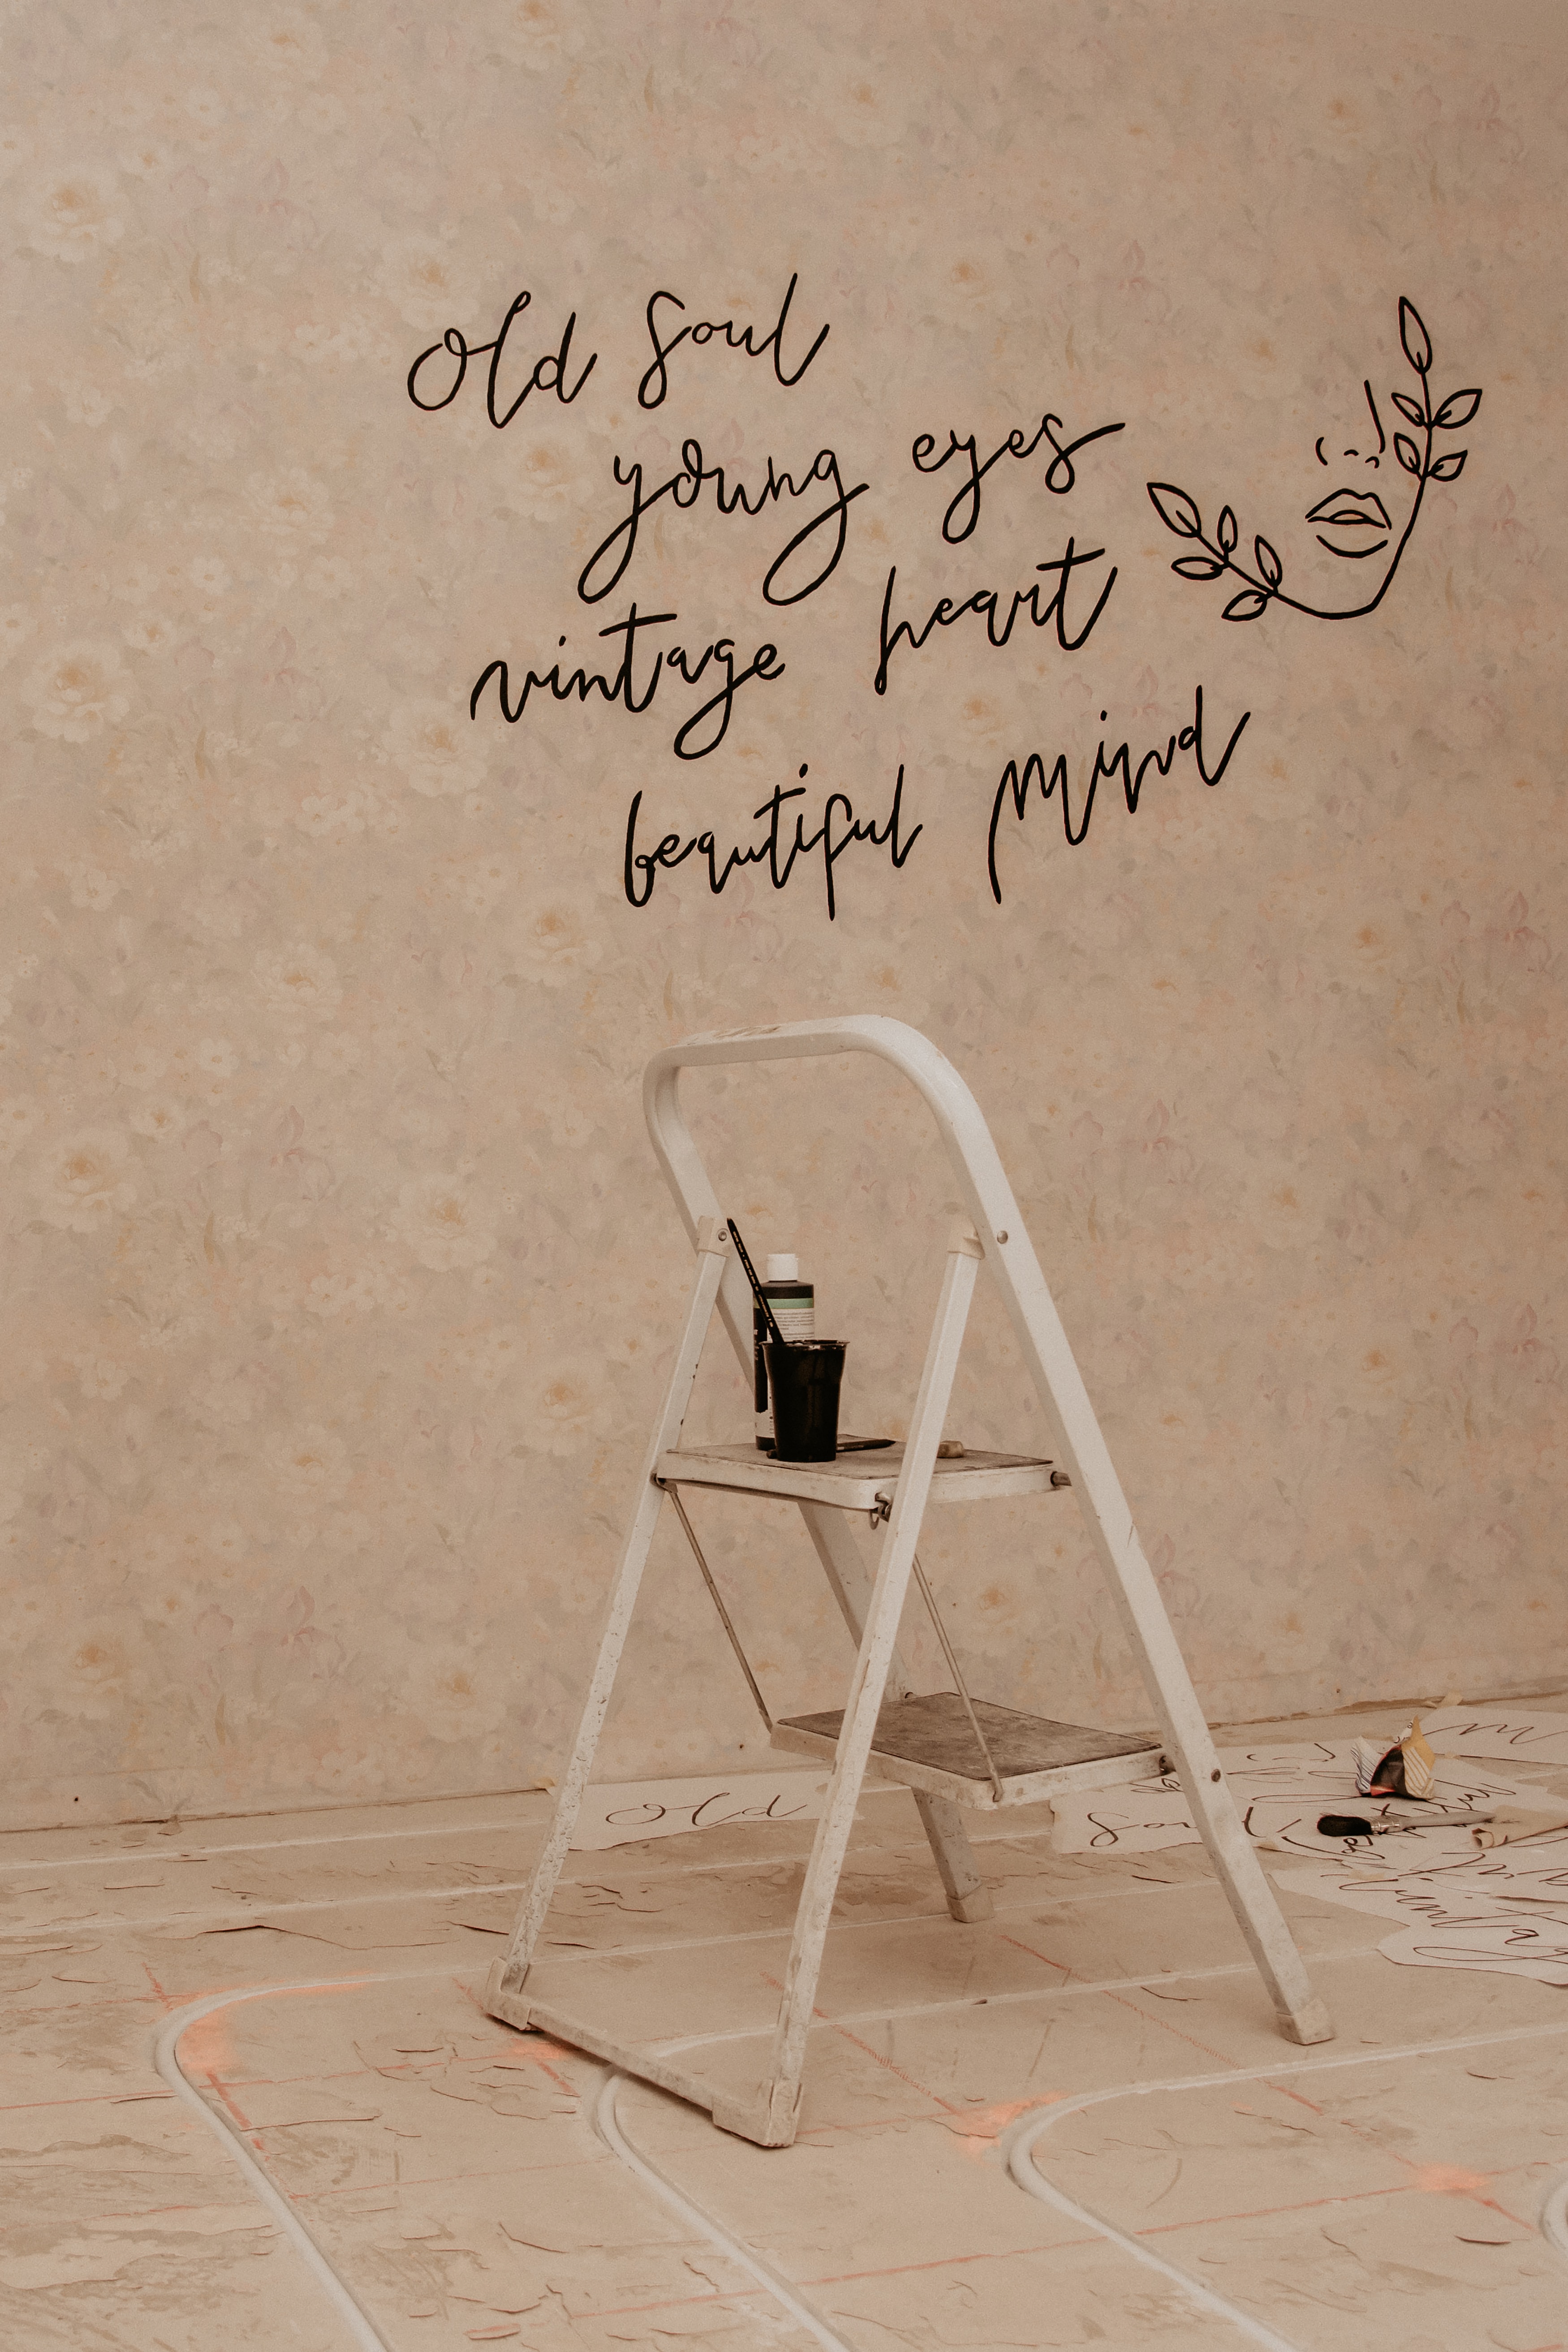 Old Soul
young eyes
vintage heart
beautiful Mind
Old
Soul
m
vintag